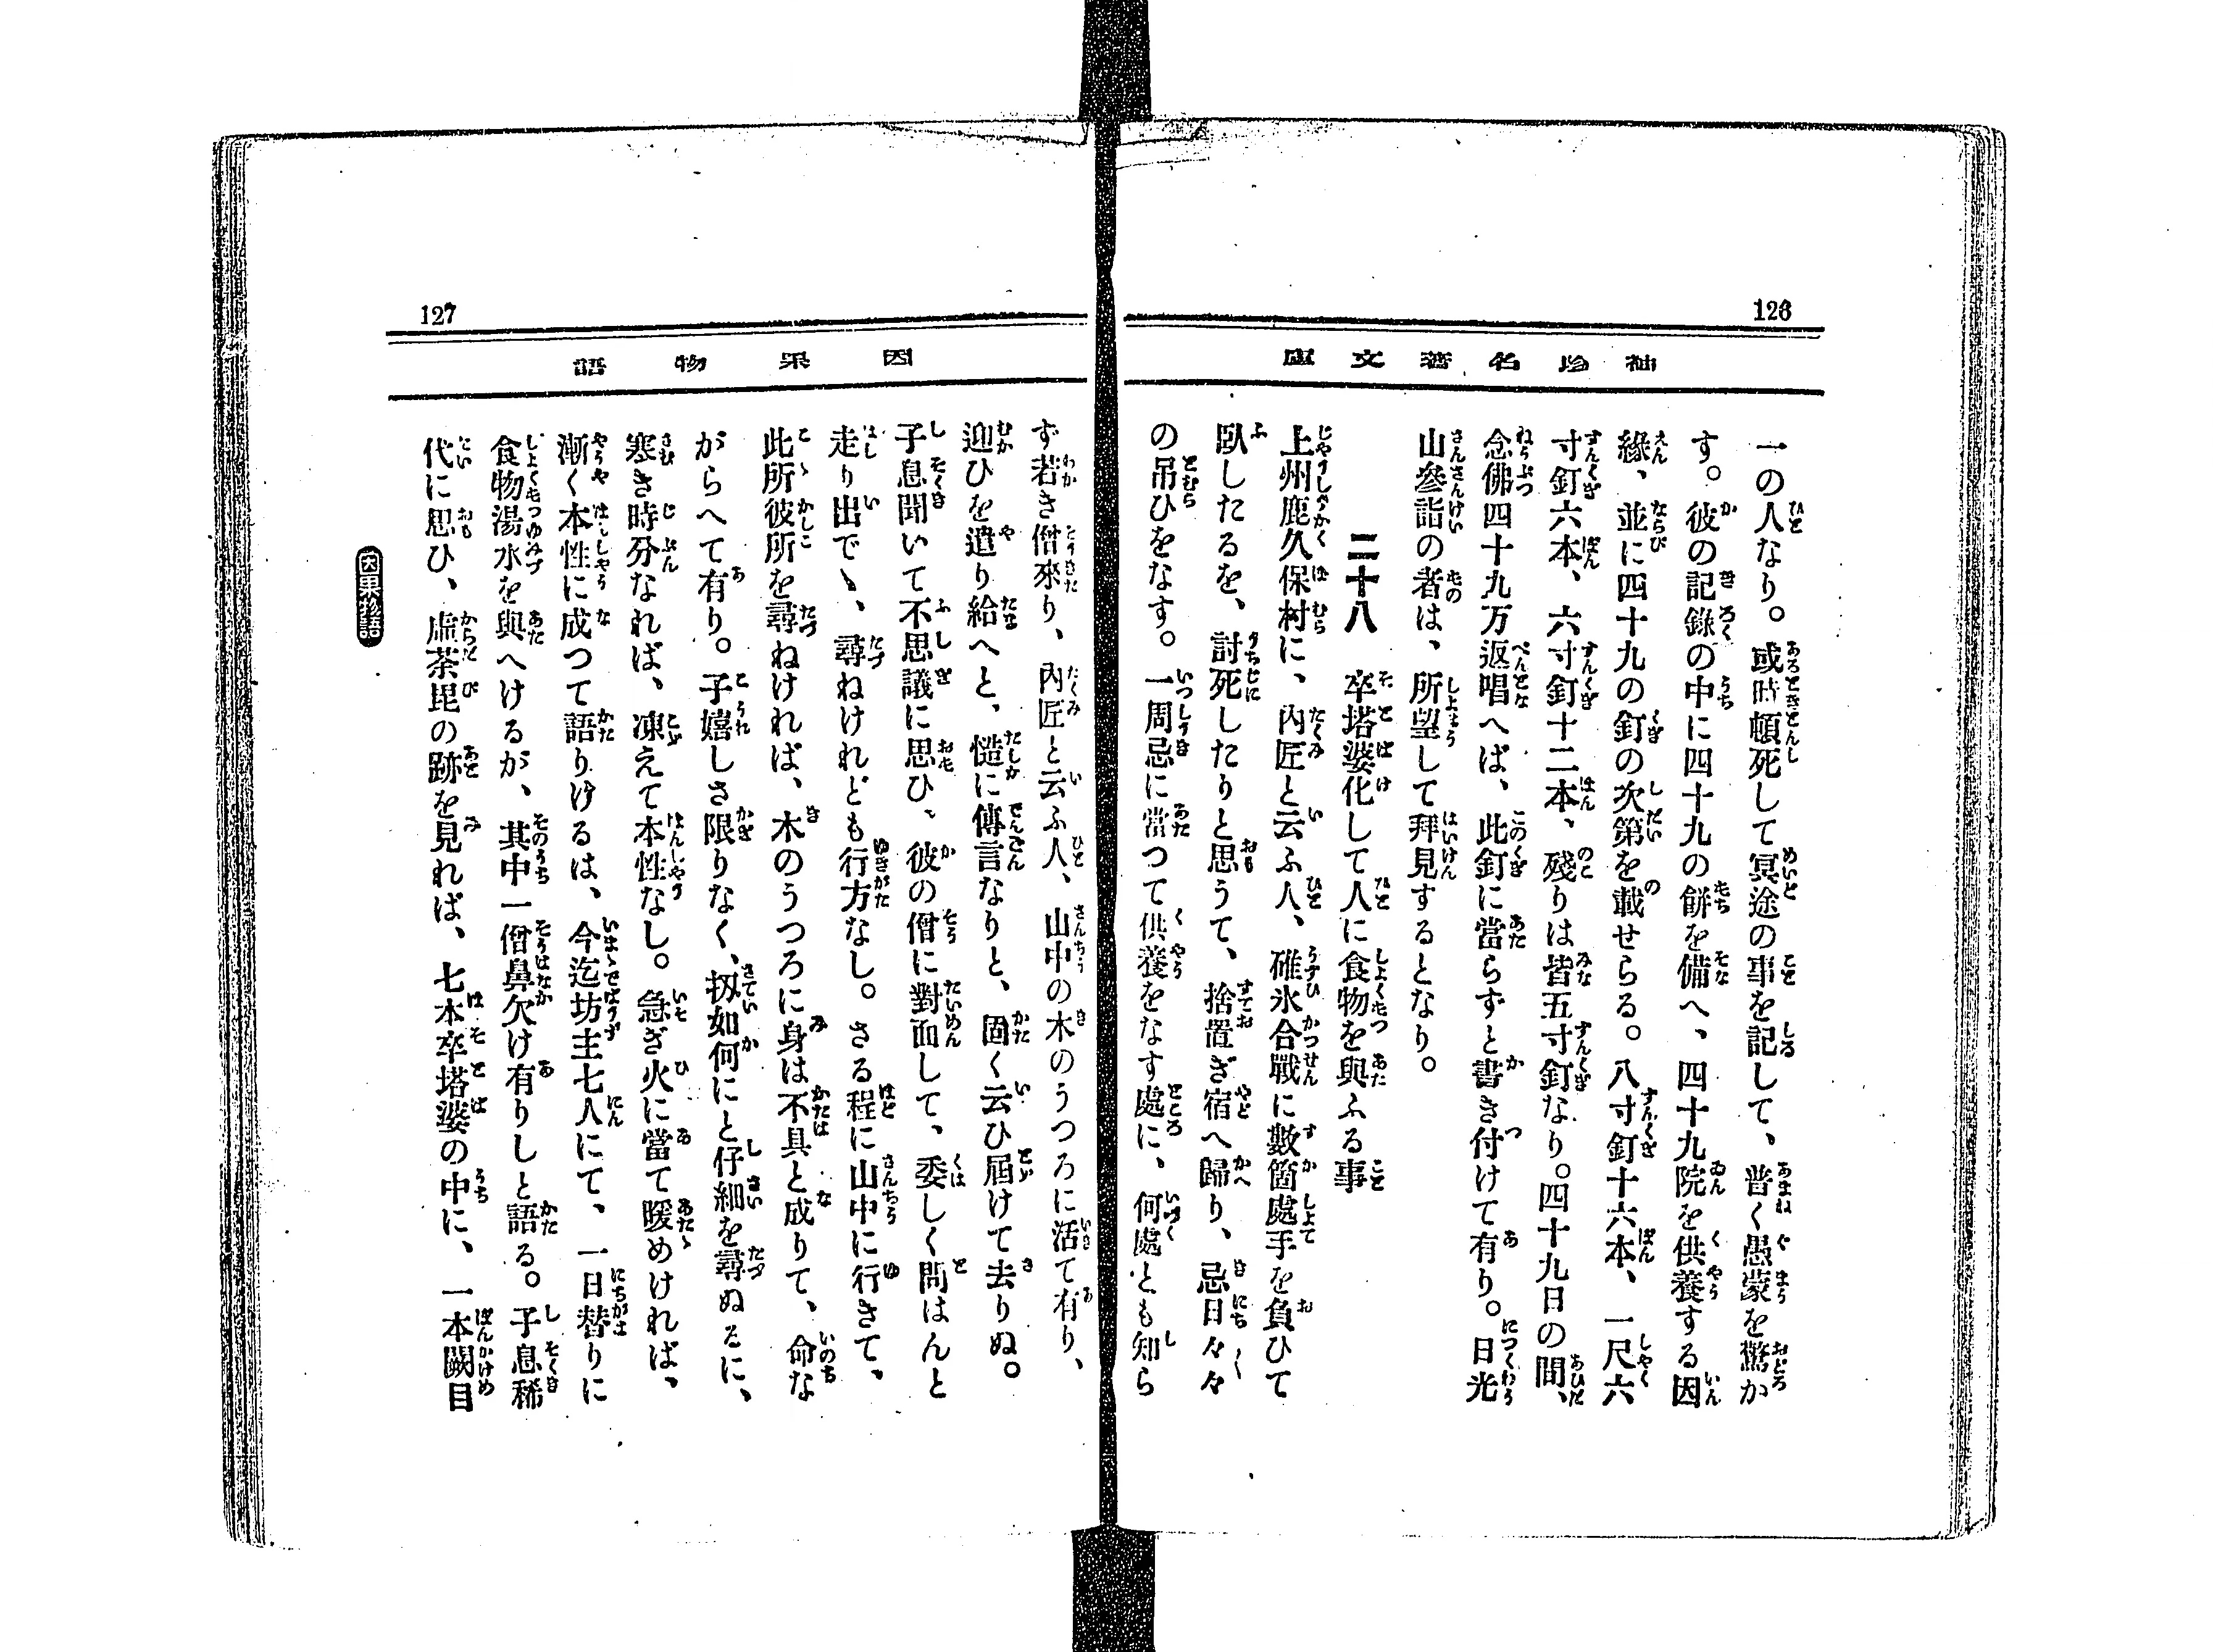 126
袖珍名著文庫
一の人なり。或時頓死して冥途の事を記して、普く愚蒙を驚か
す。彼の記錄の中に四十九の餠を備へ、四十九院を供養する因
緣、並に四十九の釘の次第を載せらる。八寸釘十六本、一尺六
寸釘六本、六寸釘十二本、殘りは皆五寸釘なり。四十九日の間、
念佛四十九万返唱へば、此釘に當らずと書き付けて有り。日光
山參詣の者は、所望して拜見するとなり。
二十八　卒塔婆化して人に食物を與ふる事
上州鹿久保村に、內匠と云ふ人、碓氷合戰に數箇處手を負ひて
臥したるを、討死したりと思うて、捨置ぎ宿へ歸り、忌日々々
の吊ひをなす。一周忌に當つて供養をなす處に、何處とも知ら
127
因果物語
ず若き僧來り、內匠と云ふ人、山中の木のうつろに活て有り、
迎ひを遣り給へと、慥に傳言なりと、固く云ひ屆けて去りぬ。
子息聞いて不思議に思ひ、彼の僧に對面して、委しく問はんと
走り出で、尋ねけれども行方なし。さる程に山中に行きて、
此所彼所を尋ねければ、木のうつろに身は不具と成りて、命な
がらへて有り。子嬉しさ限りなく、扨如何にと仔細を尋ぬるに、
寒き時分なれば、凍えて本性なし。急ぎ火に當て暖めければ、
漸く本性に成つて語りけるは、今迄坊主七人にて、一日替りに
食物湯水を與へけるが、其中一僧鼻欠け有りしと語る。子息稀
代に思ひ、虛茶毘の跡を見れば、七本卒塔婆の中に、一本闕目
因果物語